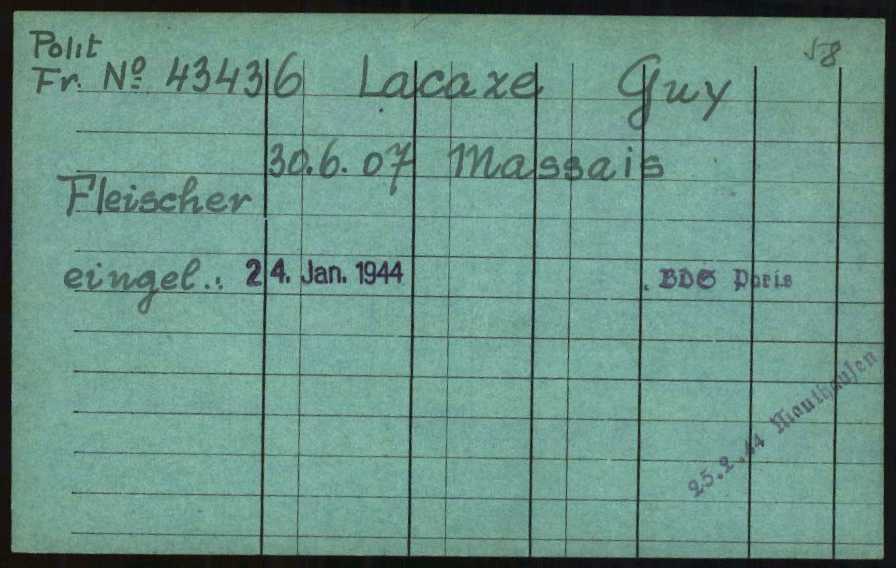 Polit 58
Fr. Nº 43436 Lacaxe Guy
30.6.07 Massais
Fleischer
eingel.: 24. Jan. 1944 BDS Paris
25.2.44 Mauthausen